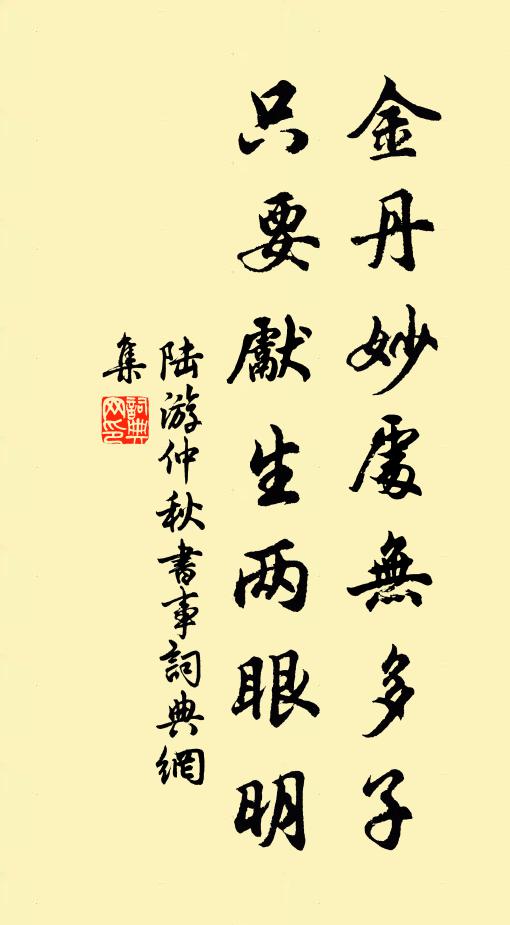 金丹妙處無多子
只要獻生两眼明
陆游仲秋書事詞典網
集
詞典
网印